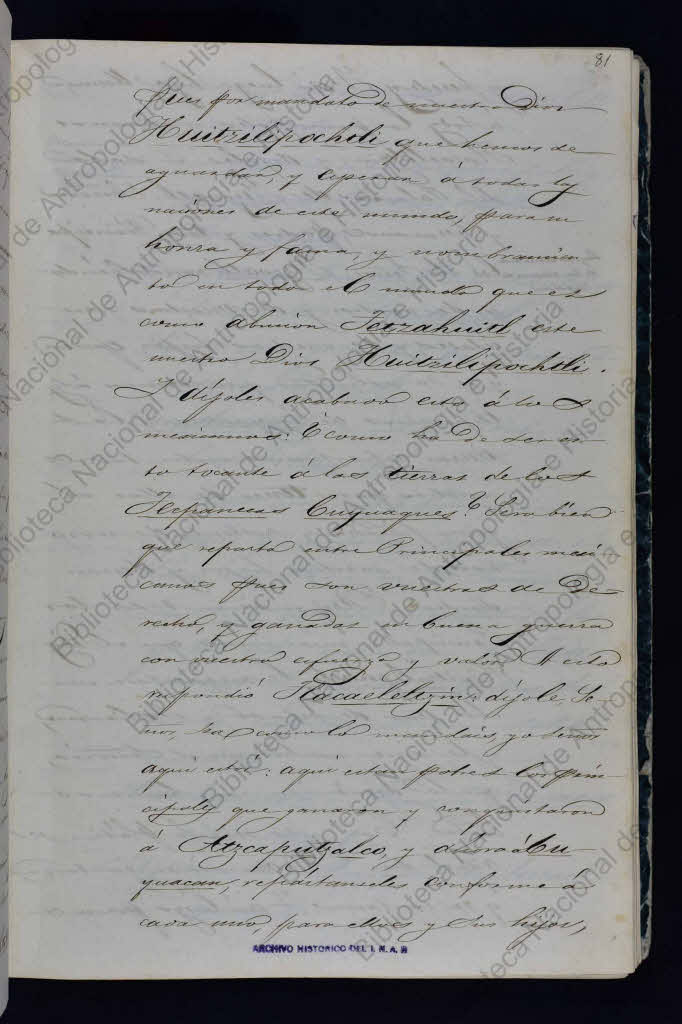 81
pues por mandato de nuestro Dios
Huitzilipochtli que hemos de
aguardar, y esperar á todas las
naciones de este mundo, para su
honra y fama, y nombramien
to en todo el mundo que es
como abusion Tetzahuitl este
nuestro Dios Huitzilipochtli.
Y díjoles acabado esto á los
mexicanos: Y como ha de ser es-
to tocante á las tierras de los
Tepanecas Cuyuaques? Sera bien
que reparta entre Principales mexi
canos pues son vuestras de De-
recho, y ganadas en buena guerra
con vuestro esfuerzo y valor. A esto
respondió Tlacaeleltzin: díjole, Se-
ñor, sea como lo mandais,
aqui está: aqui estan pobres los prin-
cipales que ganaron y conquistaron
á Atzcaputzalco, y ahora á Cu-
yuacan, repártanseles conforme á
cada uno, para ellos y sus hijos,
ARCHIVO HISTORICO DEL I. N. A. H
Biblioteca Nacional de Antropología e Historia